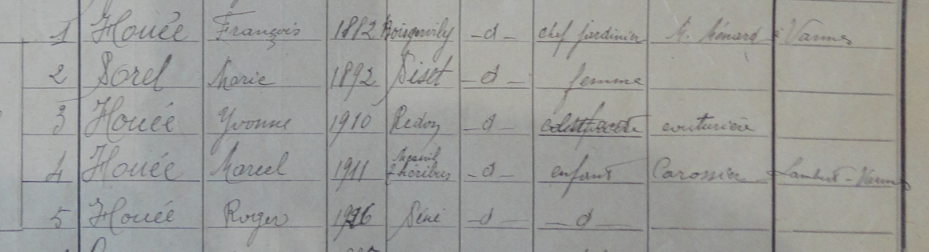 1 Houée François 1882 -d- chef jardinier M. Ménard à Vannes
2 Sorel Marie 1892 -d- femme
3 Houée Yvonne 1910 Redon -d- couturière
4 Houée Marcel 1911 Mesnil -d- enfant Carossier Lambert-Vannes
5 Houée Roger 1926 Séné -d- -d